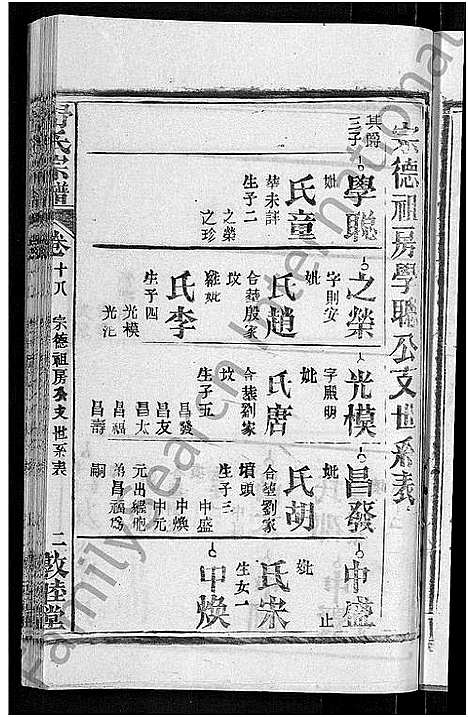 宗德祖房學聰公支世系表
其爵三子
學聰
妣童氏
葬未詳
生子二
之榮
之珍
之榮
字則安
妣趙氏
合葬殷家坟
繼妣李氏
生子四
光模
光汜
光模
字熙明
妣唐氏
合葬劉家坟
生子五
昌發
昌友
昌太
昌福
昌壽
昌發
妣胡氏
合葬劉家墳頭
生子三
中盛
中煥
中元
元出繼胞弟昌福為嗣
中盛
止
妣宋氏
生女一
中煥
氏宗譜
卷十八
宗德祖房公支世系表
二
敦睦堂
FamilySearch International